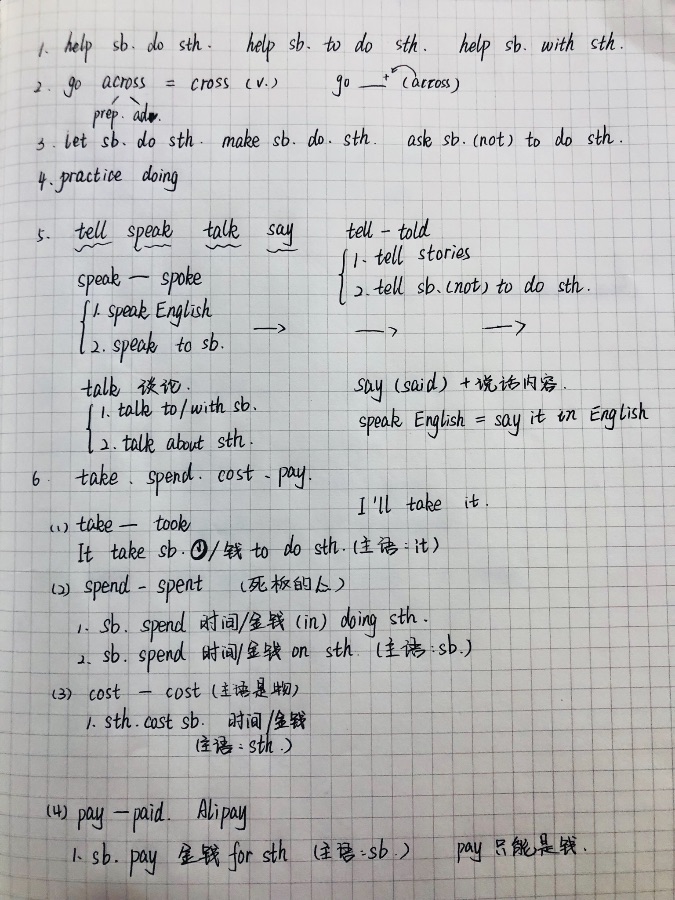 1. help sb. do sth. help sb. to do sth. help sb. with sth.
2. go across = cross (v.) go __ + (across)
prep. adv.
3. let sb. do sth. make sb. do. sth. ask sb. (not) to do sth.
4. practice doing
5. tell speak talk say
tell - told
1. tell stories
2. tell sb. (not) to do sth.
speak — spoke
1. speak English
2. speak to sb.
→ → →
talk 谈论.
1. talk to/with sb.
2. talk about sth.
say (said) + 说话内容.
speak English = say it in English
6. take. spend. cost. pay.
I'll take it.
(1) take — took
It take sb. /钱 to do sth. (主语:it)
(2) spend - spent (死板的人)
1. sb. spend 时间/金钱 (in) doing sth.
2. sb. spend 时间/金钱 on sth. (主语:sb.)
(3) cost — cost (主语是物)
1. sth. cost sb. 时间/金钱
(主语:sth.)
(4) pay — paid. Alipay
1. sb. pay 金钱 for sth (主语:sb.) pay 只能是钱.